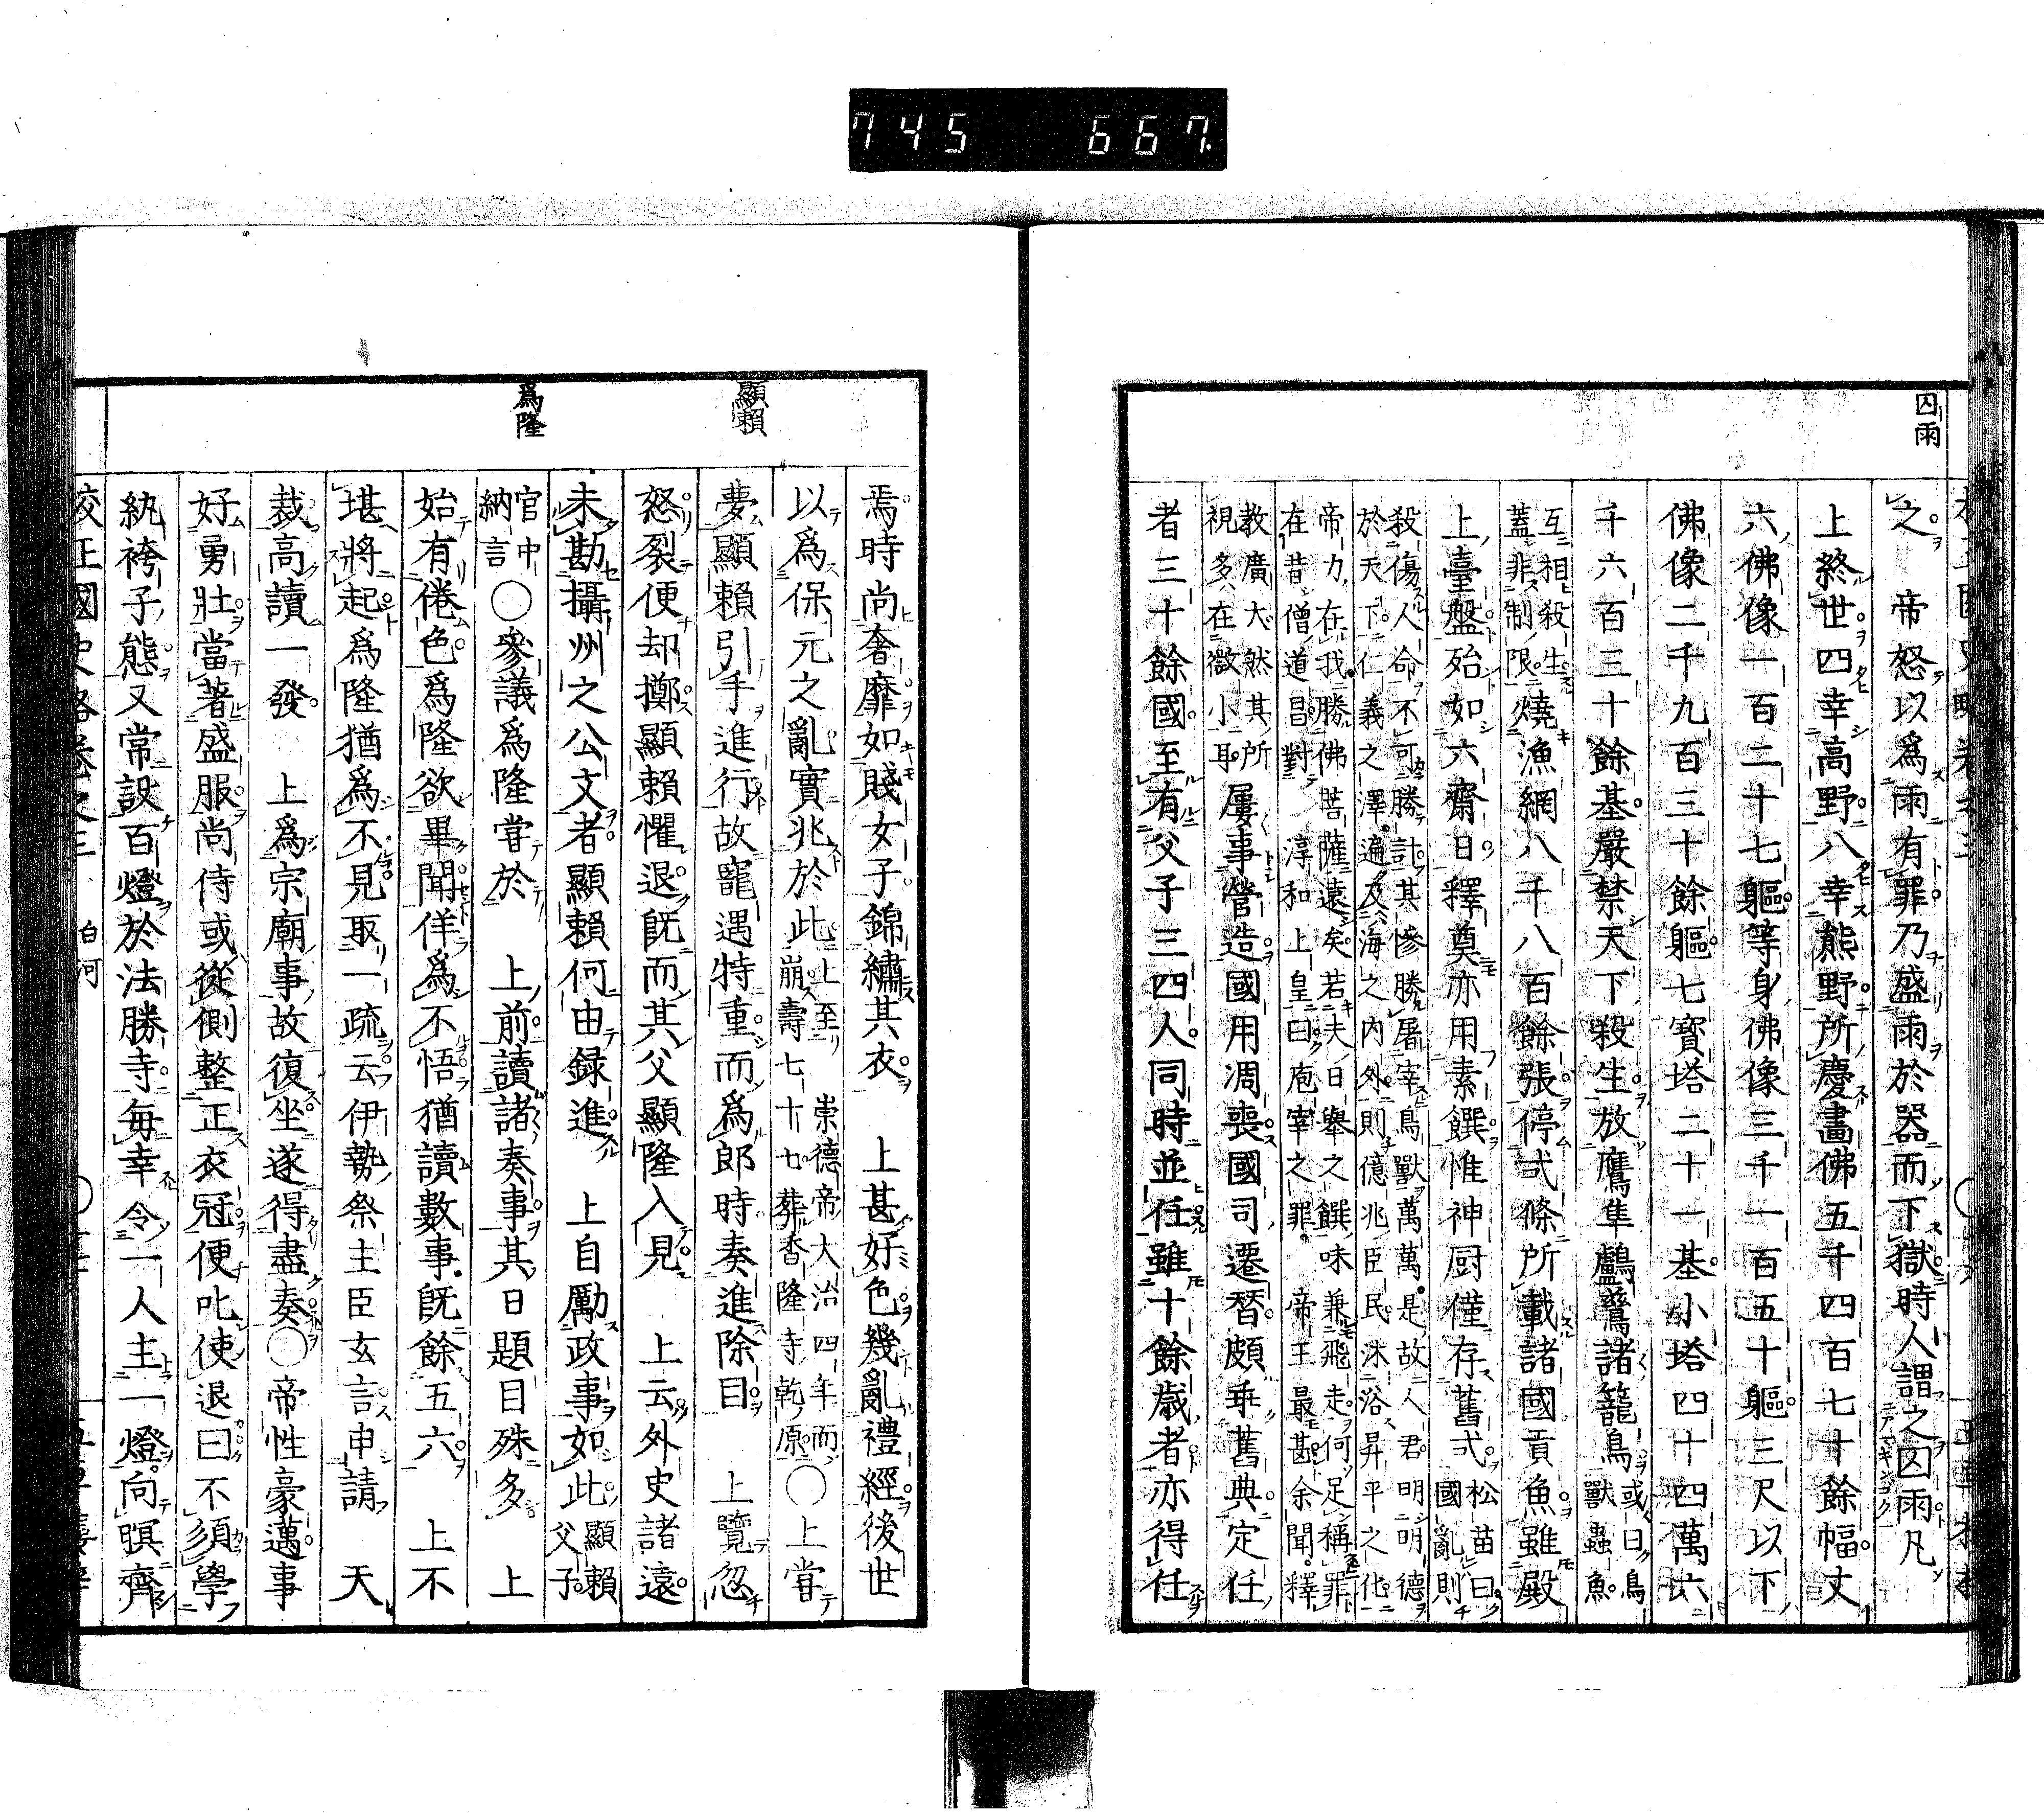 745 667.
囚雨
之 帝怒以爲雨有罪乃盛雨於器而下獄時人謂之囚雨凡
上終世四幸高野八幸熊野所慶畫佛五千四百七十餘幅丈
六佛像一百二十七軀等身佛像三千一百五十軀三尺以下
佛像二千九百三十餘軀七寳塔二十一基小塔四十四萬六
千六百三十餘基嚴禁天下殺生放鷹隼鸕鶿諸籠鳥或曰鳥獸蟲魚
互相殺生蓋非制限燒漁網八千八百餘張停式條所載諸國貢魚雖殿
上臺盤殆如六齋日釋奠亦用素饌惟神厨僅存舊式松苗曰國亂則
殺傷人命不可勝計其慘勝屠宰鳥獸萬萬是故人君明明德
於天下仁義之澤遍及海之內外則億兆臣民沐浴昇平之化
帝力在我勝佛菩薩遠矣若夫日舉之饌味兼飛走何足稱罪
在昔僧道昌對 淳和上皇曰庖宰之罪 帝王最甚余聞釋
教廣大然其所視多在微小耳屢事營造國用凋喪國司遷替頗乖舊典定任
者三十餘國至有父子三四人同時並任雖十餘歲者亦得任
顯賴
爲隆
焉時尚奢靡如賤女子錦繡其衣 上甚好色幾亂禮經後世
以爲保元之亂實兆於此上至 崇德帝大治四年而崩壽七十七葬香隆寺乾原○上嘗
夢顯賴引手進行故寵遇特重而爲郎時奏進除目 上覽忽
怒裂便却擲顯賴懼退既而其父顯隆入見 上云外史諸遠
未勘攝州之公文者顯賴何由録進 上自勵政事如此顯賴父子
官中納言○參議爲隆嘗於 上前讀諸奏事其日題目殊多 上
始有倦色爲隆欲畢聞佯爲不悟猶讀數事既餘五六 上不
堪將起爲隆猶爲不見取一疏云伊勢祭主臣玄言申請 天
裁高讀一發 上爲宗廟事故復坐遂得盡奏○帝性豪邁事
好勇壯當著盛服尚侍或從側整正衣冠便叱使退曰不須學
紈袴子態又常設百燈於法勝寺每幸令一人主一燈向暝齊
校正國史略卷之三 白河